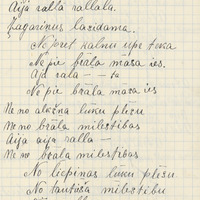 Aija ralla rallala.
Ļagariņus lazidama.
No pret kalnu upe teka
No pie brāļa māsa ies.
Aja rala – – ta
No pie brāļa māsa ies
Ne no alkšņa lūku plēšu
Ne no brāļa mīlestības
Aija aija ralla –
Ne no brāļa mīlestības
No liepiņas lūku plēšu
No tautieša mīlestību